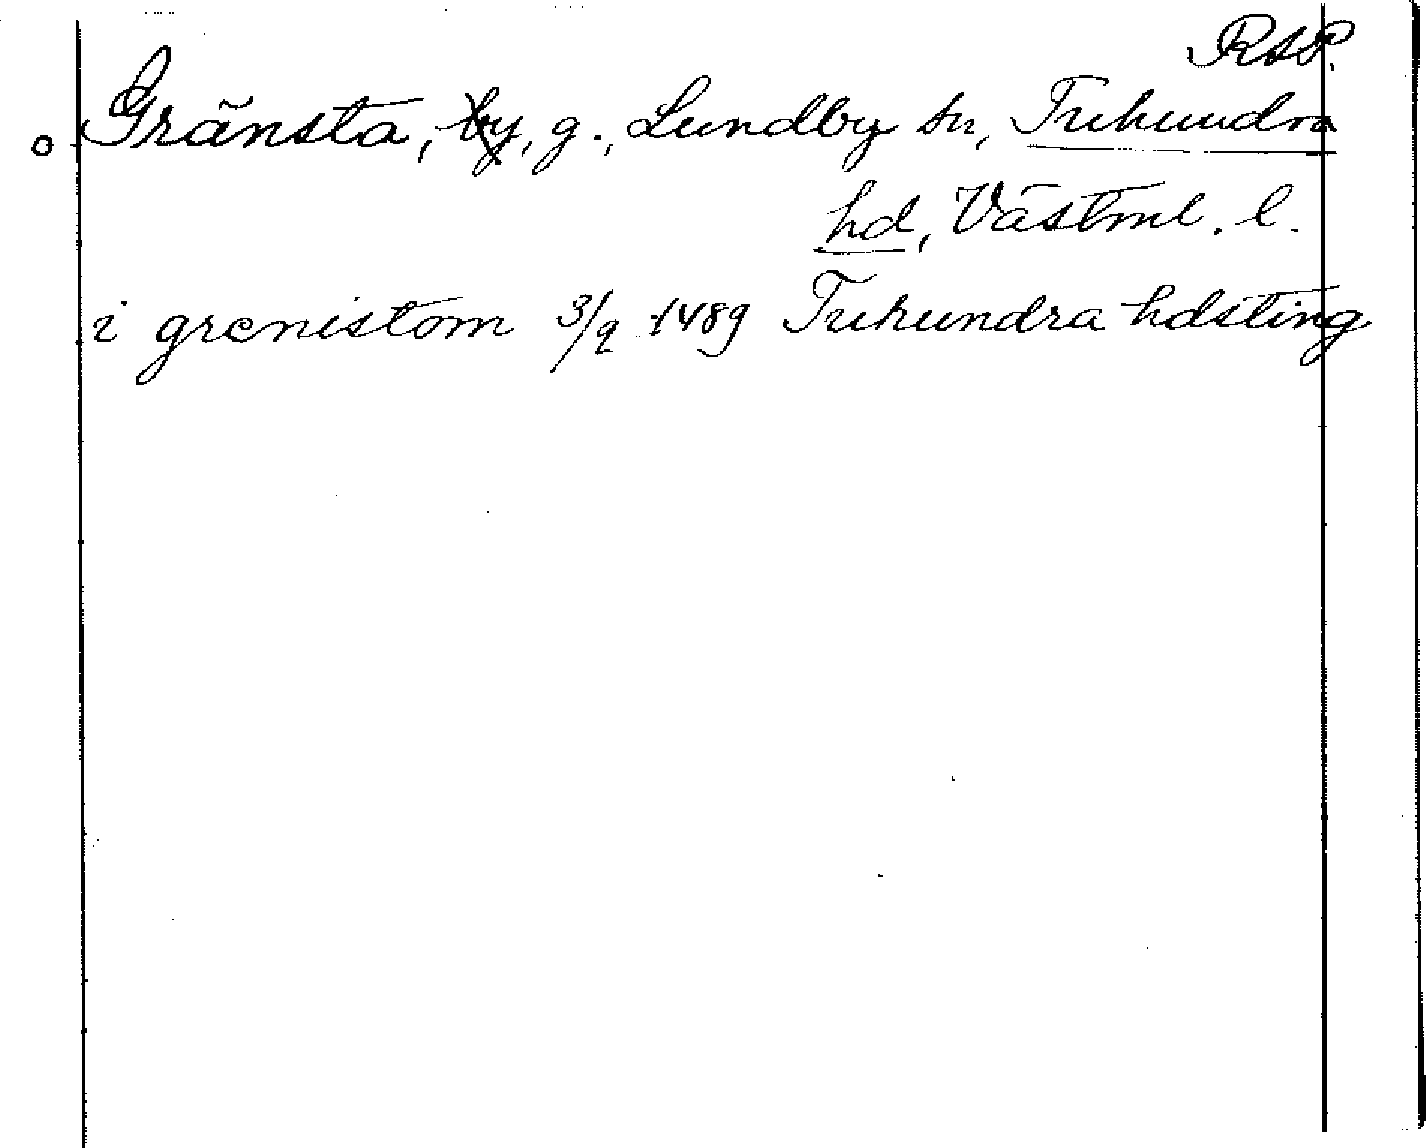 RAP.
Gränsta, by, g., Lundby sn, Tuhundra
hd, Västml. l.
i grenistom 3/9 1489 Tuhundra hdsting